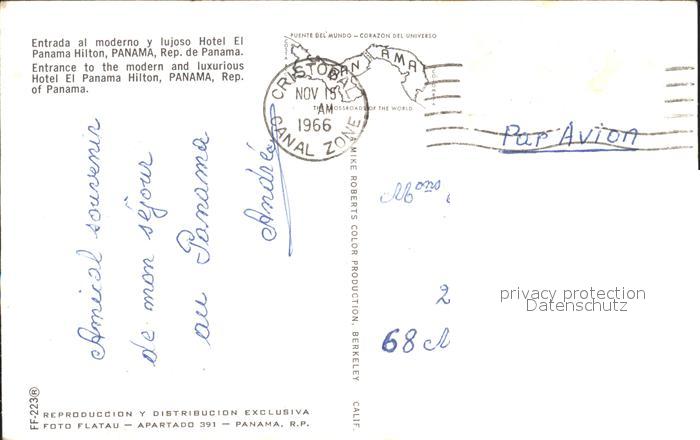 Entrada al moderno y lujoso Hotel El
Panama Hilton, PANAMA, Rep. de Panama.
Entrance to the modern and luxurious
Hotel El Panama Hilton, PANAMA, Rep.
of Panama.
PUENTE DEL MUNDO – CORAZON DEL UNIVERSO
PANAMA
THE CROSSROADS OF THE WORLD
CRISTOBAL
NOV 15
AM
1966
CANAL ZONE
Par Avion
Amical souvenir
de mon séjour
au Panama
André
MIKE ROBERTS COLOR PRODUCTION, BERKELEY CALIF.
2
68
privacy protection
Datenschutz
FF-223®
REPRODUCCION Y DISTRIBUCION EXCLUSIVA
FOTO FLATAU — APARTADO 391 — PANAMA, R.P.